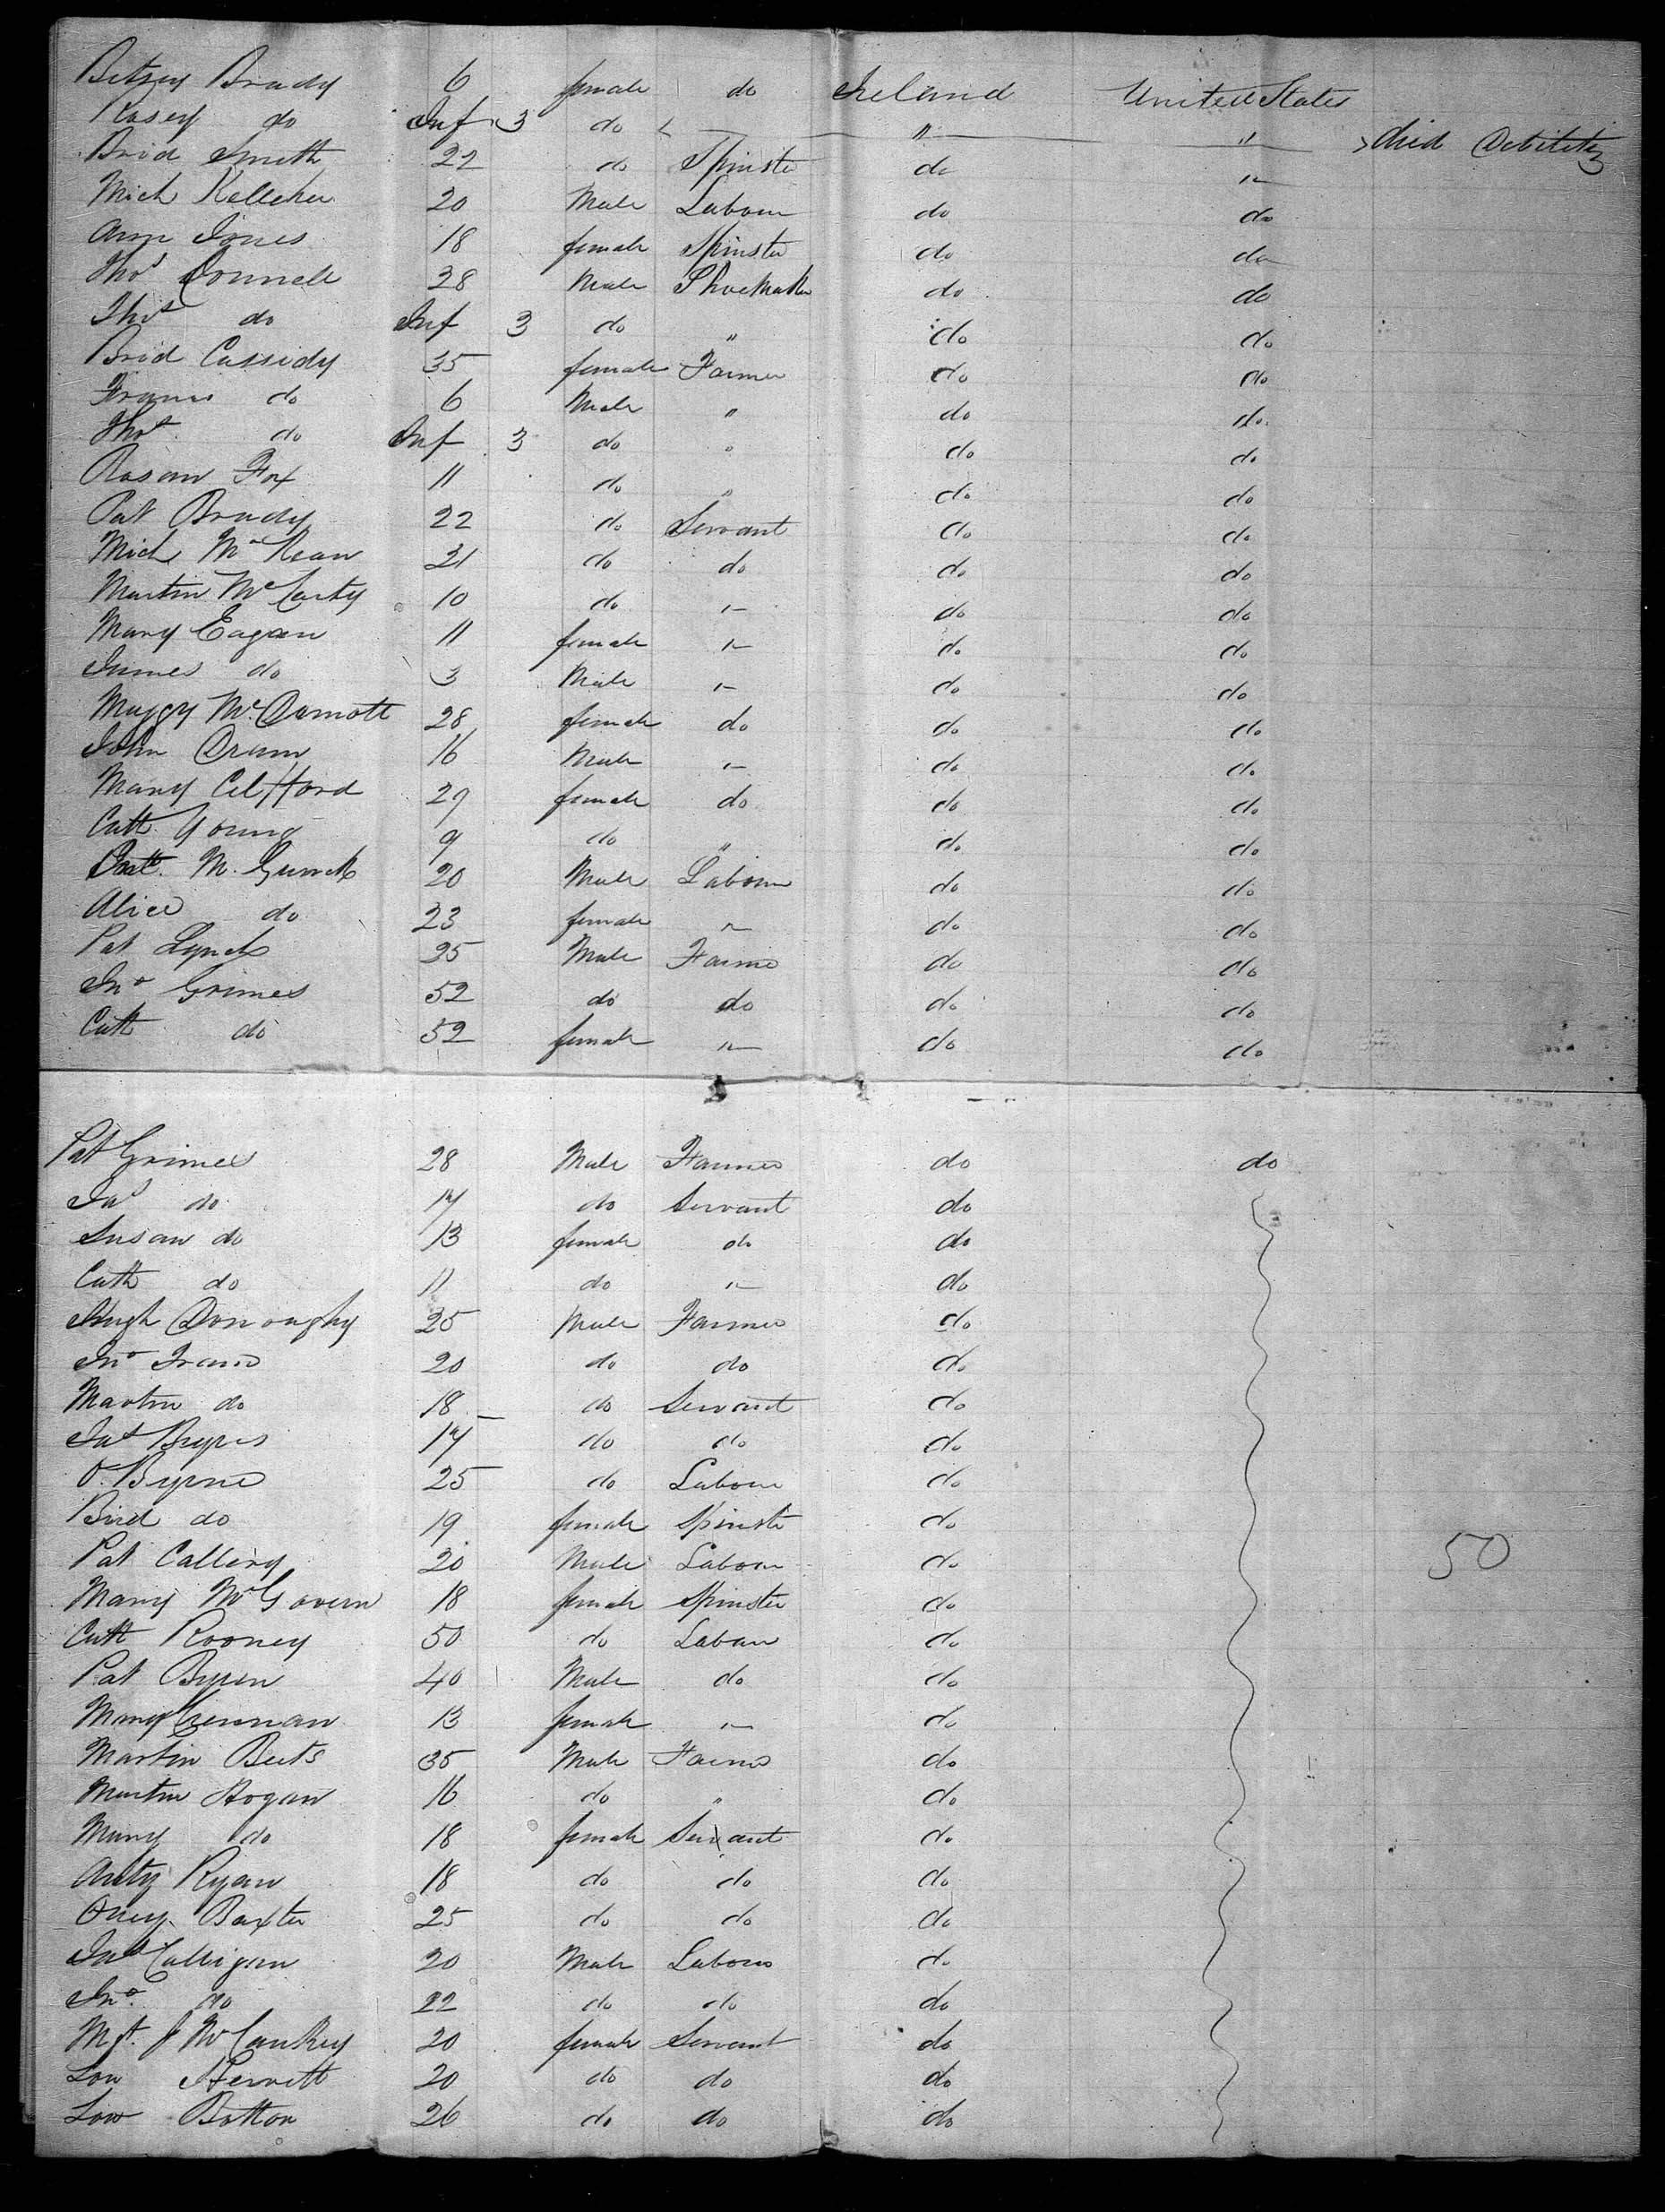 Betsey Brady 6 female do Ireland United States
Rosey do Inf 3 do " " died Debility
Brid Smith 22 do Spinster do "
Mich Kelleher 20 Male Labour do do
Ann Jones 18 female Spinster do do
Thos Donnell 28 Male Shoemaker do do
Thos do Inf 3 do " do do
Brid Cassidy 35 female Farmer do do
Frances do 6 Male " do do
Thos do Inf 3 do " do do
Rosan Fox 11 do " do do
Pat Brady 22 do Servant do do
Mich McKean 21 do do do do
Martin McCarty 10 do " do do
Mary Eagan 11 female " do do
James do 3 Male " do do
Maggy McDamott 28 female do do do
John Drum 16 Male " do do
Mary Clifford 27 female do do do
Cath Young 9 do " do do
Patt. M. 20 Male Labour do do
Alice do 23 female " do do
Pat Lynch 35 Male Farmer do do
Jno Grimes 52 do do do do
Cath do 52 female " do do
Pat Grimes 28 Male Farmer do do
Jas do 17 do Servant do
Susan do 13 female do do
Cath do 11 do " do
Hugh Donoughy 25 Male Farmer do
Jno 20 do do do
Martin do 18 do Servant do
Jas 17 do do do
O. Byrne 25 do Labour do
Bird do 19 female Spinster do
Pat Callery 20 Male Labour do 50
Mary McGovern 18 female Spinster do
Cath Rooney 50 do Labour do
Pat Byren 40 Male do do
Mary 13 female " do
Martin 35 Male Farmer do
Martin Hogan 16 do " do
Mary do 18 female Servant do
Anty Ryan 18 do do do
Oney Baxter 25 do do do
Jas Culligan 20 Male Labour do
Jno. do 22 do do do
Mgt. J McCaukey 20 female Servant do
20 do do do
26 do do do